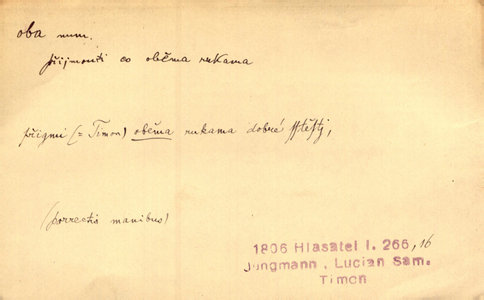 oba num.
přijmouti co oběma rukama
přigmi (= Timon) oběma rukama dobré sstěstj,
(porrectis manibus)
1806 Hlasatel I. 266, 16
Jungmann, Lucian Sam.
Timon